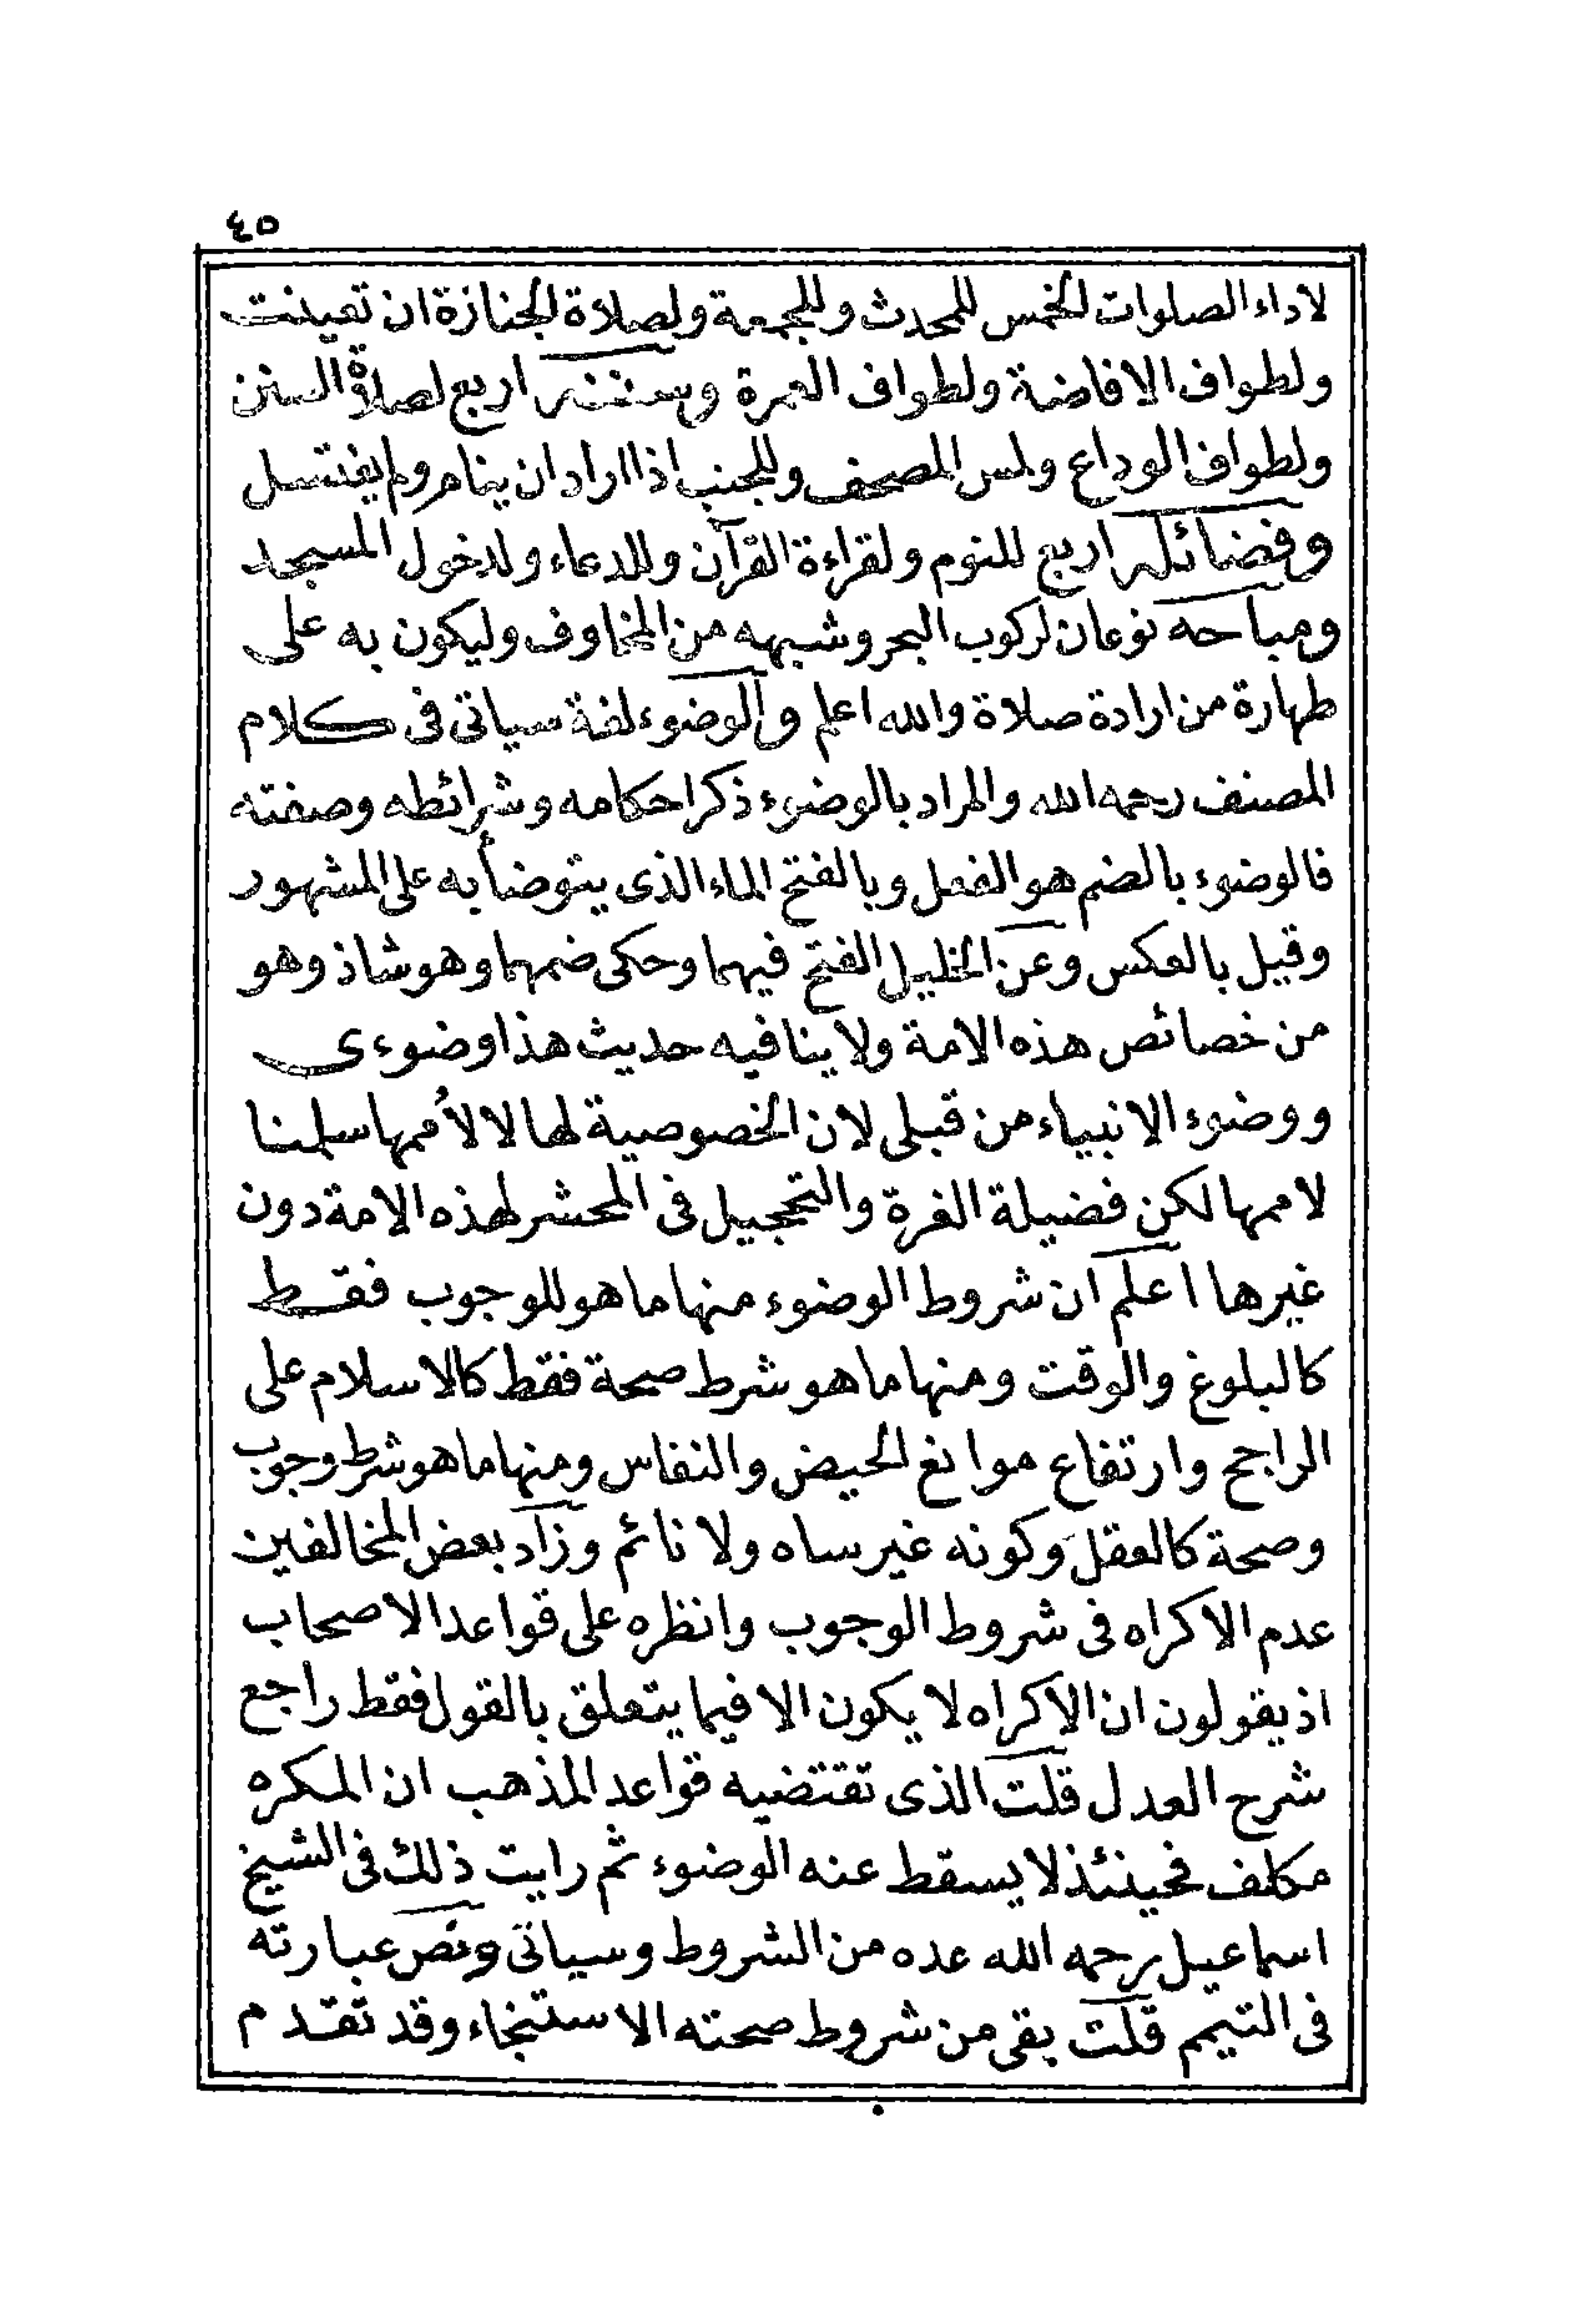 ٤٥
لاداء الصلوات الخمس للمحدث وللجمعة ولصلاة الجنازة ان تعينت
ولطواف الافاضة ولطواف العمرة وسننه اربع لصلاة السنن
ولطواف الوداع ولمس المصحف وللجنب اذا اراد ان ينام ولم يغتسل
وفضائله اربع للنوم ولقراءة القرآن وللدعاء ولدخول المسجد
ومباحه نوعان لركوب البحر وشبهه من المخاوف وليكون به على
طهارة من ارادة صلاة والله اعلم والوضوء لغة سياتى فى كلام
المصنف رحمه الله والمراد بالوضوء ذكر احكامه وشرائطه وصفته
فالوضوء بالضم هو الفعل وبالفتح الماء الذى يتوضأ به على المشهور
وقيل بالعكس وعن الخليل الفتح فيهما وحكى ضمهما وهو شاذ وهو
من خصائص هذه الامة ولا ينافيه حديث هذا وضوءى
ووضوء الانبياء من قبلى لان الخصوصية لها لا لأممها سلمنا
لاممها لكن فضيلة الغرة والتحجيل فى المحشر لهذه الامة دون
غيرها اعلم ان شروط الوضوء منها ما هو للوجوب فقط
كالبلوغ والوقت ومنها ما هو شرط صحة فقط كالاسلام على
الراجح وارتفاع موانع الحيض والنفاس ومنها ما هو شرط وجوب
وصحة كالعقل وكونه غير ساه ولا نائم وزاد بعض المخالفين
عدم الاكراه فى شروط الوجوب وانظره على قواعد الاصحاب
اذ يقولون ان الاكراه لا يكون الا فيما يتعلق بالقول فقط راجع
شرح العدل قلت الذى تقتضيه قواعد المذهب ان المكره
مكلف فحينئذ لا يسقط عنه الوضوء ثم رايت ذلك فى الشيخ
اسماعيل رحمه الله عده من الشروط وسياتى ونص عبارته
فى التيمم قلت بقى من شروط صحته الاستنجاء وقد تقدم